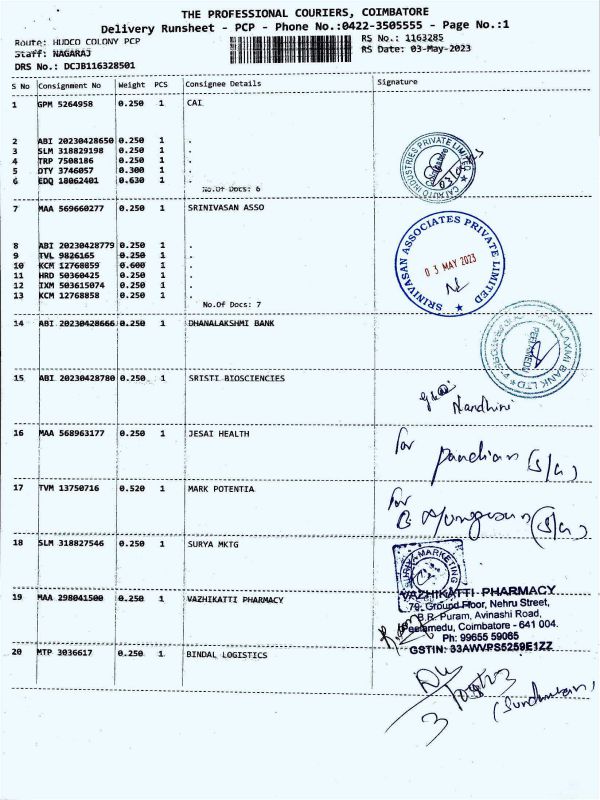 THE PROFESSIONAL COURIERS, COIMBATORE
Delivery Runsheet - PCP - Phone No.:0422-3505555 - Page No.:1
Route: HUDCO COLONY PCP
RS No.: 1163285
Staff: NAGARAJ
RS Date: 03-May-2023
DRS No.: DCJB116328501
S No Consignment No Weight PCS Consignee Details Signature
1 GPM 5264958 0.250 1 CAI
2 ABI 20230428650 0.250 1 .
3 SLM 318829198 0.250 1 .
4 TRP 7508186 0.250 1 .
5 DTY 3746057 0.300 1 .
6 EDQ 18062401 0.630 1 .
No.Of Docs: 6
CAI AUTO INDUSTRIES PRIVATE LIMITED
7 MAA 569660277 0.250 1 SRINIVASAN ASSO
8 ABI 20230428779 0.250 1 .
9 TVL 9826165 0.250 1 .
10 KCM 12768859 0.600 1 .
11 HRD 50360425 0.250 1 .
12 IXM 503615074 0.250 1 .
13 KCM 12768858 0.250 1 .
No.Of Docs: 7
SRINIVASAN ASSOCIATES PRIVATE LIMITED
03 MAY 2023
14 ABI 20230428666 0.250 1 DHANALAKSHMI BANK
BANK LTD
15 ABI 20230428780 0.250 1 SRISTI BIOSCIENCIES
Nandhini
16 MAA 568963177 0.250 1 JESAI HEALTH
for
pandian (S/G)
17 TVM 13750716 0.520 1 MARK POTENTIA
for
(S/G)
18 SLM 318827546 0.250 1 SURYA MKTG
SURYA MARKETING
19 MAA 298041500 0.250 1 VAZHIKATTI PHARMACY
VAZHIKATTI PHARMACY
79, Ground Floor, Nehru Street,
B.R. Puram, Avinashi Road,
Peelamedu, Coimbatore - 641 004.
Ph: 99655 59065
GSTIN: 33AWVPS5259E1ZZ
20 MTP 3036617 0.250 1 BINDAL LOGISTICS